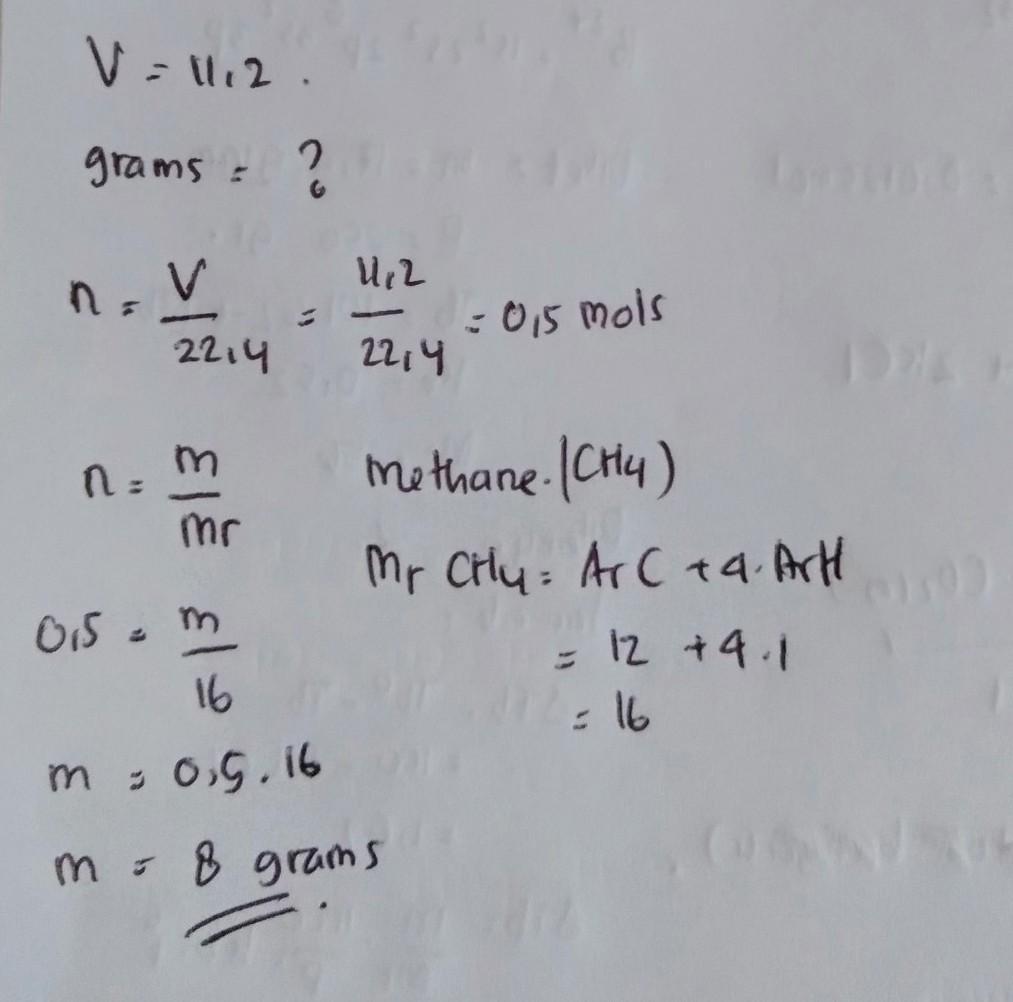 V = 11,2 .
grams = ?
n = V/22,4 = 11,2/22,4 = 0,5 mols
n = m/mr
Methane. (CH4)
Mr CH4 = Ar C + 4. Ar H
= 12 + 4 . 1
= 16
0,5 = m/16
m = 0,5 . 16
m = 8 grams.